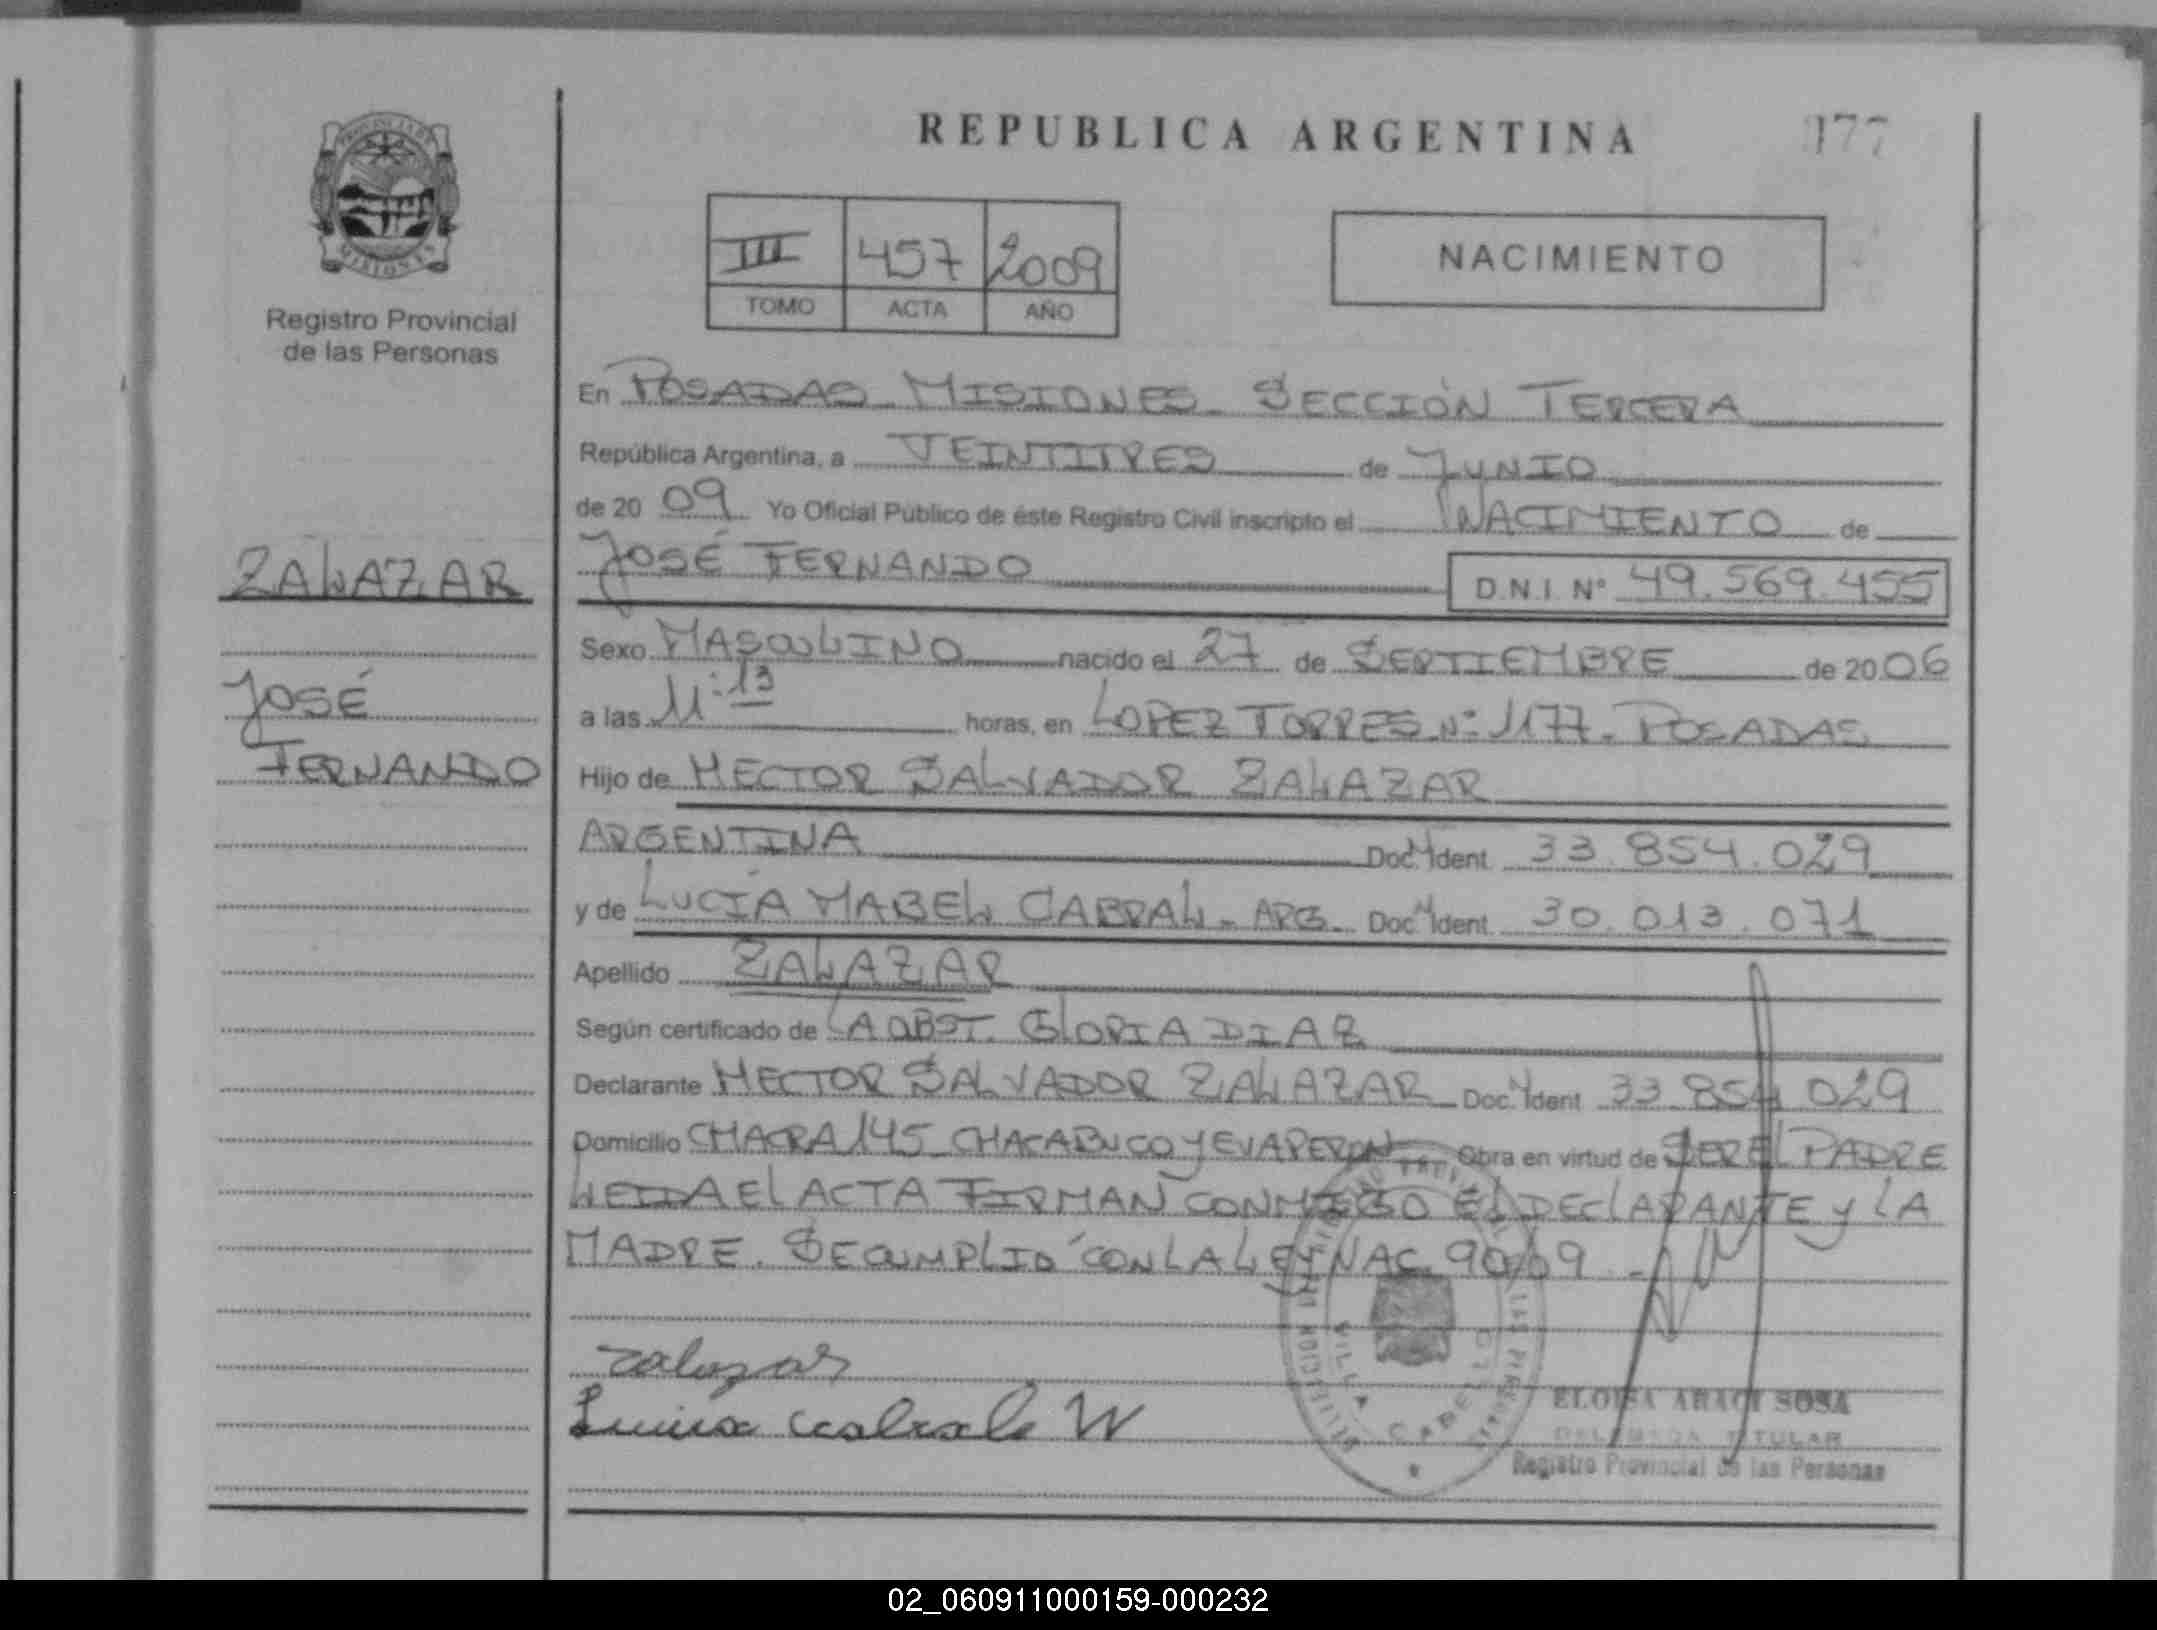 REPUBLICA ARGENTINA
177
PROVINCIA DE MISIONES
Registro Provincial
de las Personas
III 457 2009
TOMO ACTA AÑO
NACIMIENTO
En POSADAS MISIONES. SECCIÓN TERCERA
República Argentina, a VEINTITRES de JUNIO
de 20 09 Yo Oficial Público de éste Registro Civil inscripto el NACIMIENTO de
JOSÉ FERNANDO D.N.I. Nº 49.569.455
ZALAZAR
JOSÉ
FERNANDO
Sexo MASCULINO nacido el 27 de SEPTIEMBRE de 20 06
a las 11:13 horas, en LOPEZ TORRES Nº 1177. POSADAS
Hijo de HECTOR SALVADOR ZALAZAR
ARGENTINA Doc. Ident. 33.854.029
y de LUCÍA MABEL CABRAL - ARG. Doc. Ident. 30.013.071
Apellido ZALAZAR
Según certificado de LA OBST. GLORIA DIAZ
Declarante HECTOR SALVADOR ZALAZAR Doc. Ident. 33 854 029
Domicilio CHACRA 145 CHACABUCO y EVA PERON Obra en virtud de SER EL PADRE
LEIDA El ACTA FIRMAN CONMIGO El DEClARANTE y LA
MADRE. SE CUMPLIO CON LA LEY NAC. 90/09.-
Zalazar
Cabral
VILLA CABELLO
ELOISA ARACI SOSA
DELEGADA TITULAR
Registro Provincial de las Personas
02_060911000159-000232